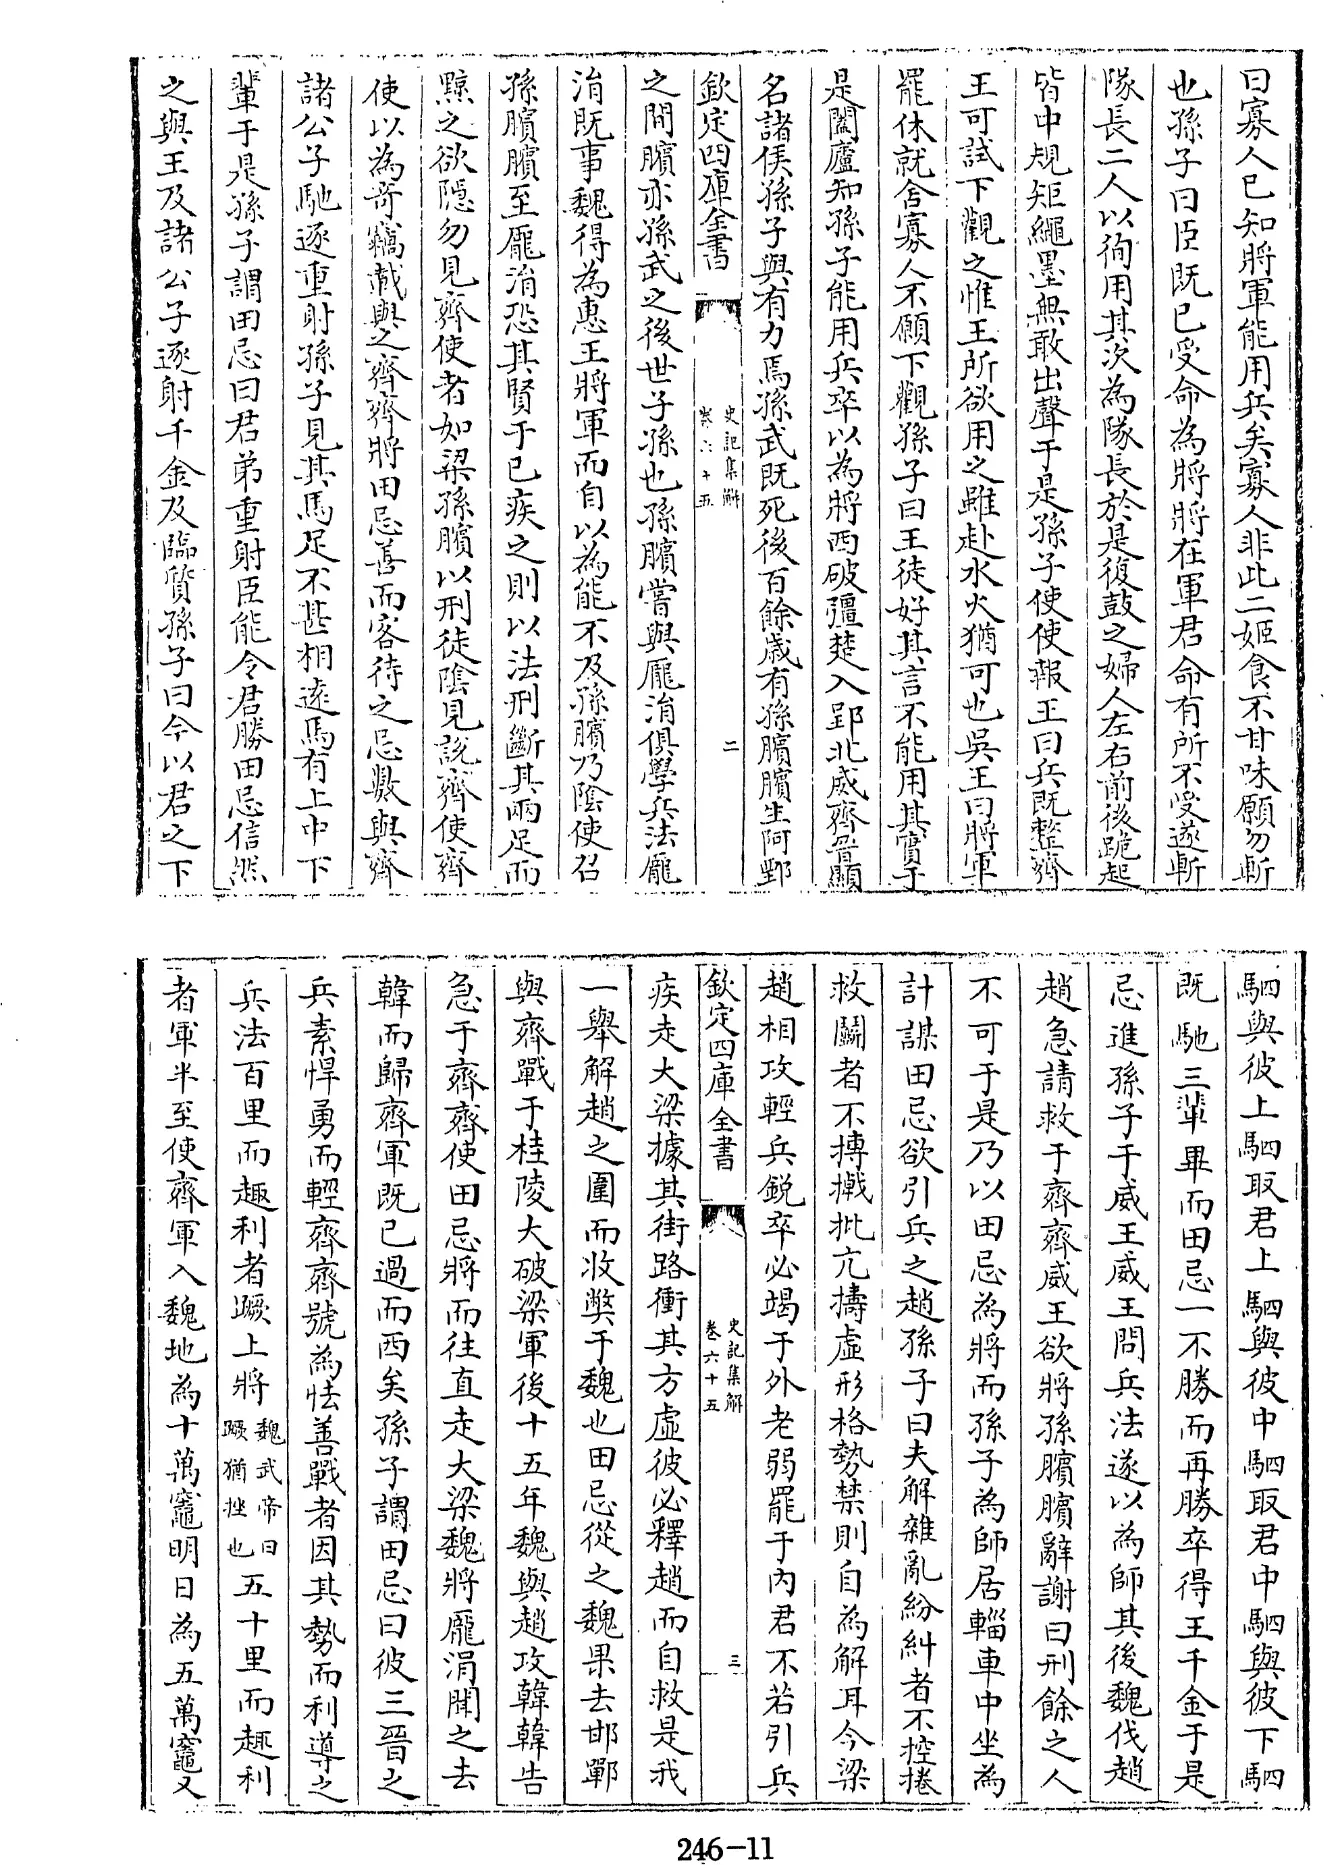 曰寡人已知將軍能用兵矣寡人非此二姬食不甘味願勿斬
也孫子曰臣既已受命為將將在軍君命有所不受遂斬
隊長二人以徇用其次為隊長於是復鼓之婦人左右前後跪起
皆中規矩繩墨無敢出聲于是孫子使使報王曰兵既整齊
王可試下觀之惟王所欲用之雖赴水火猶可也吳王曰將軍
罷休就舍寡人不願下觀孫子曰王徒好其言不能用其實于
是闔廬知孫子能用兵卒以為將西破彊楚入郢北威齊晉顯
名諸侯孫子與有力焉孫武既死後百餘歲有孫臏臏生阿鄄
欽定四庫全書
史記集解
卷六十五
二
之間臏亦孫武之後世子孫也孫臏嘗與龐涓俱學兵法龐
涓既事魏得為惠王將軍而自以為能不及孫臏乃陰使召
孫臏臏至龐涓恐其賢于已疾之則以法刑斷其兩足而
黥之欲隱勿見齊使者如梁孫臏以刑徒陰見說齊使齊
使以為奇竊載與之齊齊將田忌善而客待之忌數與齊
諸公子馳逐重射孫子見其馬足不甚相遠馬有上中下
輩于是孫子謂田忌曰君弟重射臣能令君勝田忌信然
之與王及諸公子逐射千金及臨質孫子曰今以君之下
駟與彼上駟取君上駟與彼中駟取君中駟與彼下駟
既馳三輩畢而田忌一不勝而再勝卒得王千金于是
忌進孫子于威王威王問兵法遂以為師其後魏伐趙
趙急請救于齊齊威王欲將孫臏臏辭謝曰刑餘之人
不可于是乃以田忌為將而孫子為師居輜車中坐為
計謀田忌欲引兵之趙孫子曰夫解雜亂紛糾者不控捲
救鬭者不搏撠批亢擣虛形格勢禁則自為解耳今梁
趙相攻輕兵銳卒必竭于外老弱罷于內君不若引兵
欽定四庫全書
史記集解
卷六十五
三
疾走大梁據其街路衝其方虛彼必釋趙而自救是我
一舉解趙之圍而收獘于魏也田忌從之魏果去邯鄲
與齊戰于桂陵大破梁軍後十五年魏與趙攻韓韓告
急于齊齊使田忌將而往直走大梁魏將龐涓聞之去
韓而歸齊軍既已過而西矣孫子謂田忌曰彼三晉之
兵素悍勇而輕齊齊號為怯善戰者因其勢而利導之
兵法百里而趣利者蹶上將魏武帝曰蹶猶挫也五十里而趣利
者軍半至使齊軍入魏地為十萬竈明日為五萬竈又
246-11